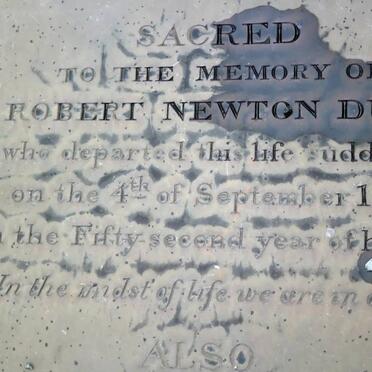 SACRED
TO THE MEMORY OF
ROBERT NEWTON DU
who departed this life sudd
on the 4th of September 1
the Fifty second year of h
In the midst of life we are in
ALSO